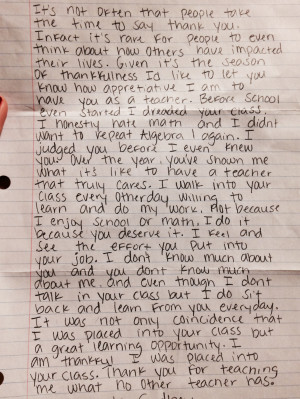 It's not often that people take
the time to say thank you.
Infact it's rare for people to even
think about how others have impacted
their lives. Given it's the season
of thankfulness I'd like to let you
know how appretiative I am to
have you as a teacher. Before school
even started I dreaded your class.
I honestly hate math and I didnt
want to repeat Algebra 1 again. I
judged you before I even knew
you. Over the year, you've shown me
what it's like to have a teacher
that truly cares. I walk into your
class every otherday willing to
learn and do my work. Not because
I enjoy school or math, I do it
because you deserve it. I feel and
see the effort you put into
your job. I dont know much about
you and you dont know much
about me. and even though I dont
talk in your class but I do sit
back and learn from you everyday.
It was not only coincidence that
I was placed into your class but
a great learning opportunity. I
am thankful I was placed into
your class. Thank you for teaching
me what no other teacher has.